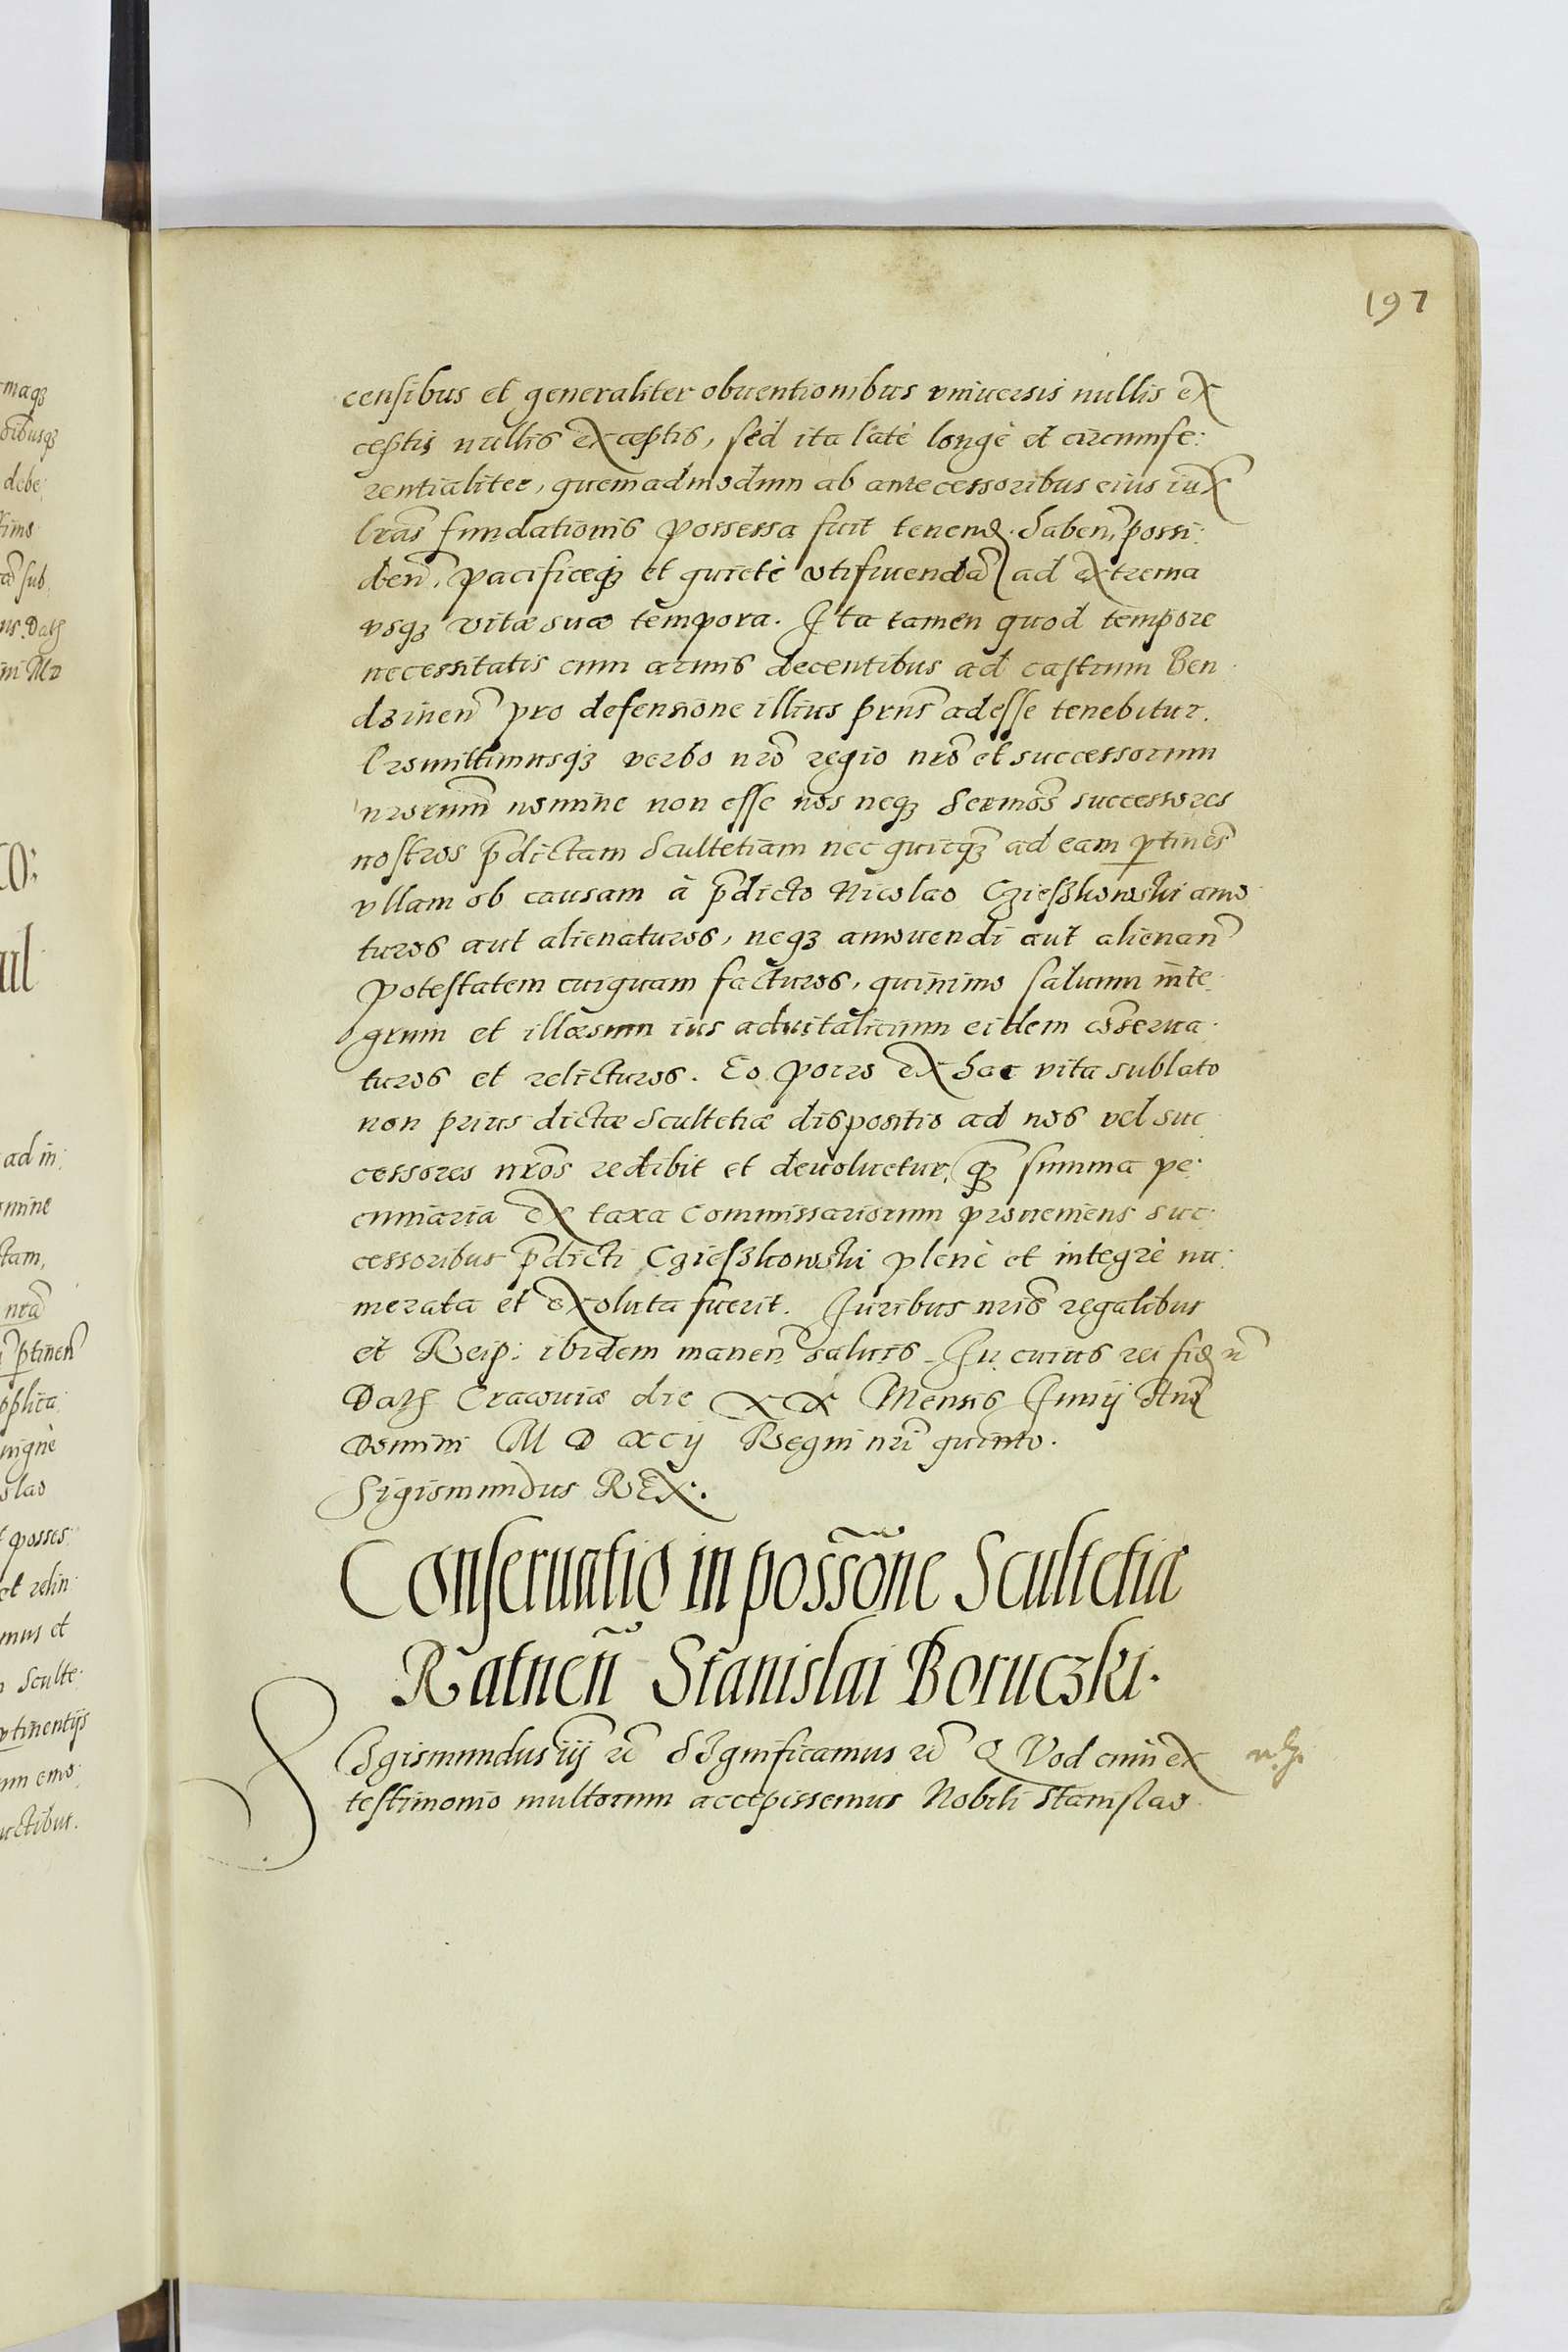 197
censibus et generaliter obuentionibus vniuersis nullis ex
ceptis nullis exceptis, sed ita latè longè et circumfe:
rentialiter, quemadmodum ab antecessoribus eius iux
lrãs fundationis possessa fuit tenend. habeñ, possi:
deñ, pacificeqz et quietè vtifruendã ad extrema
vsqz vitæ suæ tempora. Ita tamen quod tempore
necessitatis cum armis decentibus ad castrum Ben
dzineñ pro defensione illius prñs adesse tenebitur.
Promittimusqz verbo nrõ regio nrõ et successorum
nrorum̃ nomine non esse nos neqz Sermõs successores
nostros p̃dictam Scultetiam nec quicqz̃ ad eam ptineñs
vllam ob causam à p̃dicto Nicolao Czieszkowski amo
turos aut alienaturos, neqz amouendi aut alienañ
potestatem cuiquam facturos, quinimo saluum inte
grum et illæsum ius aduitalicium eidem cõserua.
turos et relicturos. Eo porro ex hac vita sublato
non prius dictæ Scultetiæ dispositio ad nos vel suc
cessores nrõs redibit et deuoluetur, qz̃ summa pe:
cuniaria ex taxa Commissariorum proueniens suc:
cessoribus p̃dicti Czieszkowski plenè et integrè nu:
merata et exoluta fuerit. Juribus nris̃ regalibus
et Reip: ibidem maneñ saluis. In cuius rei fid
Dat Cracouiæ die XX Mensis Junij Ano
Domini M D XCij Regni nri̇̃ quinto.
Sigismundus REX.
Conseruatio in possõne Scultetiæ
Ratneñ Stanislai Boruczki.
SIgismundus iij Significamus QVod cum ex
testimonio multorum accepissemus Nobili Stanislao